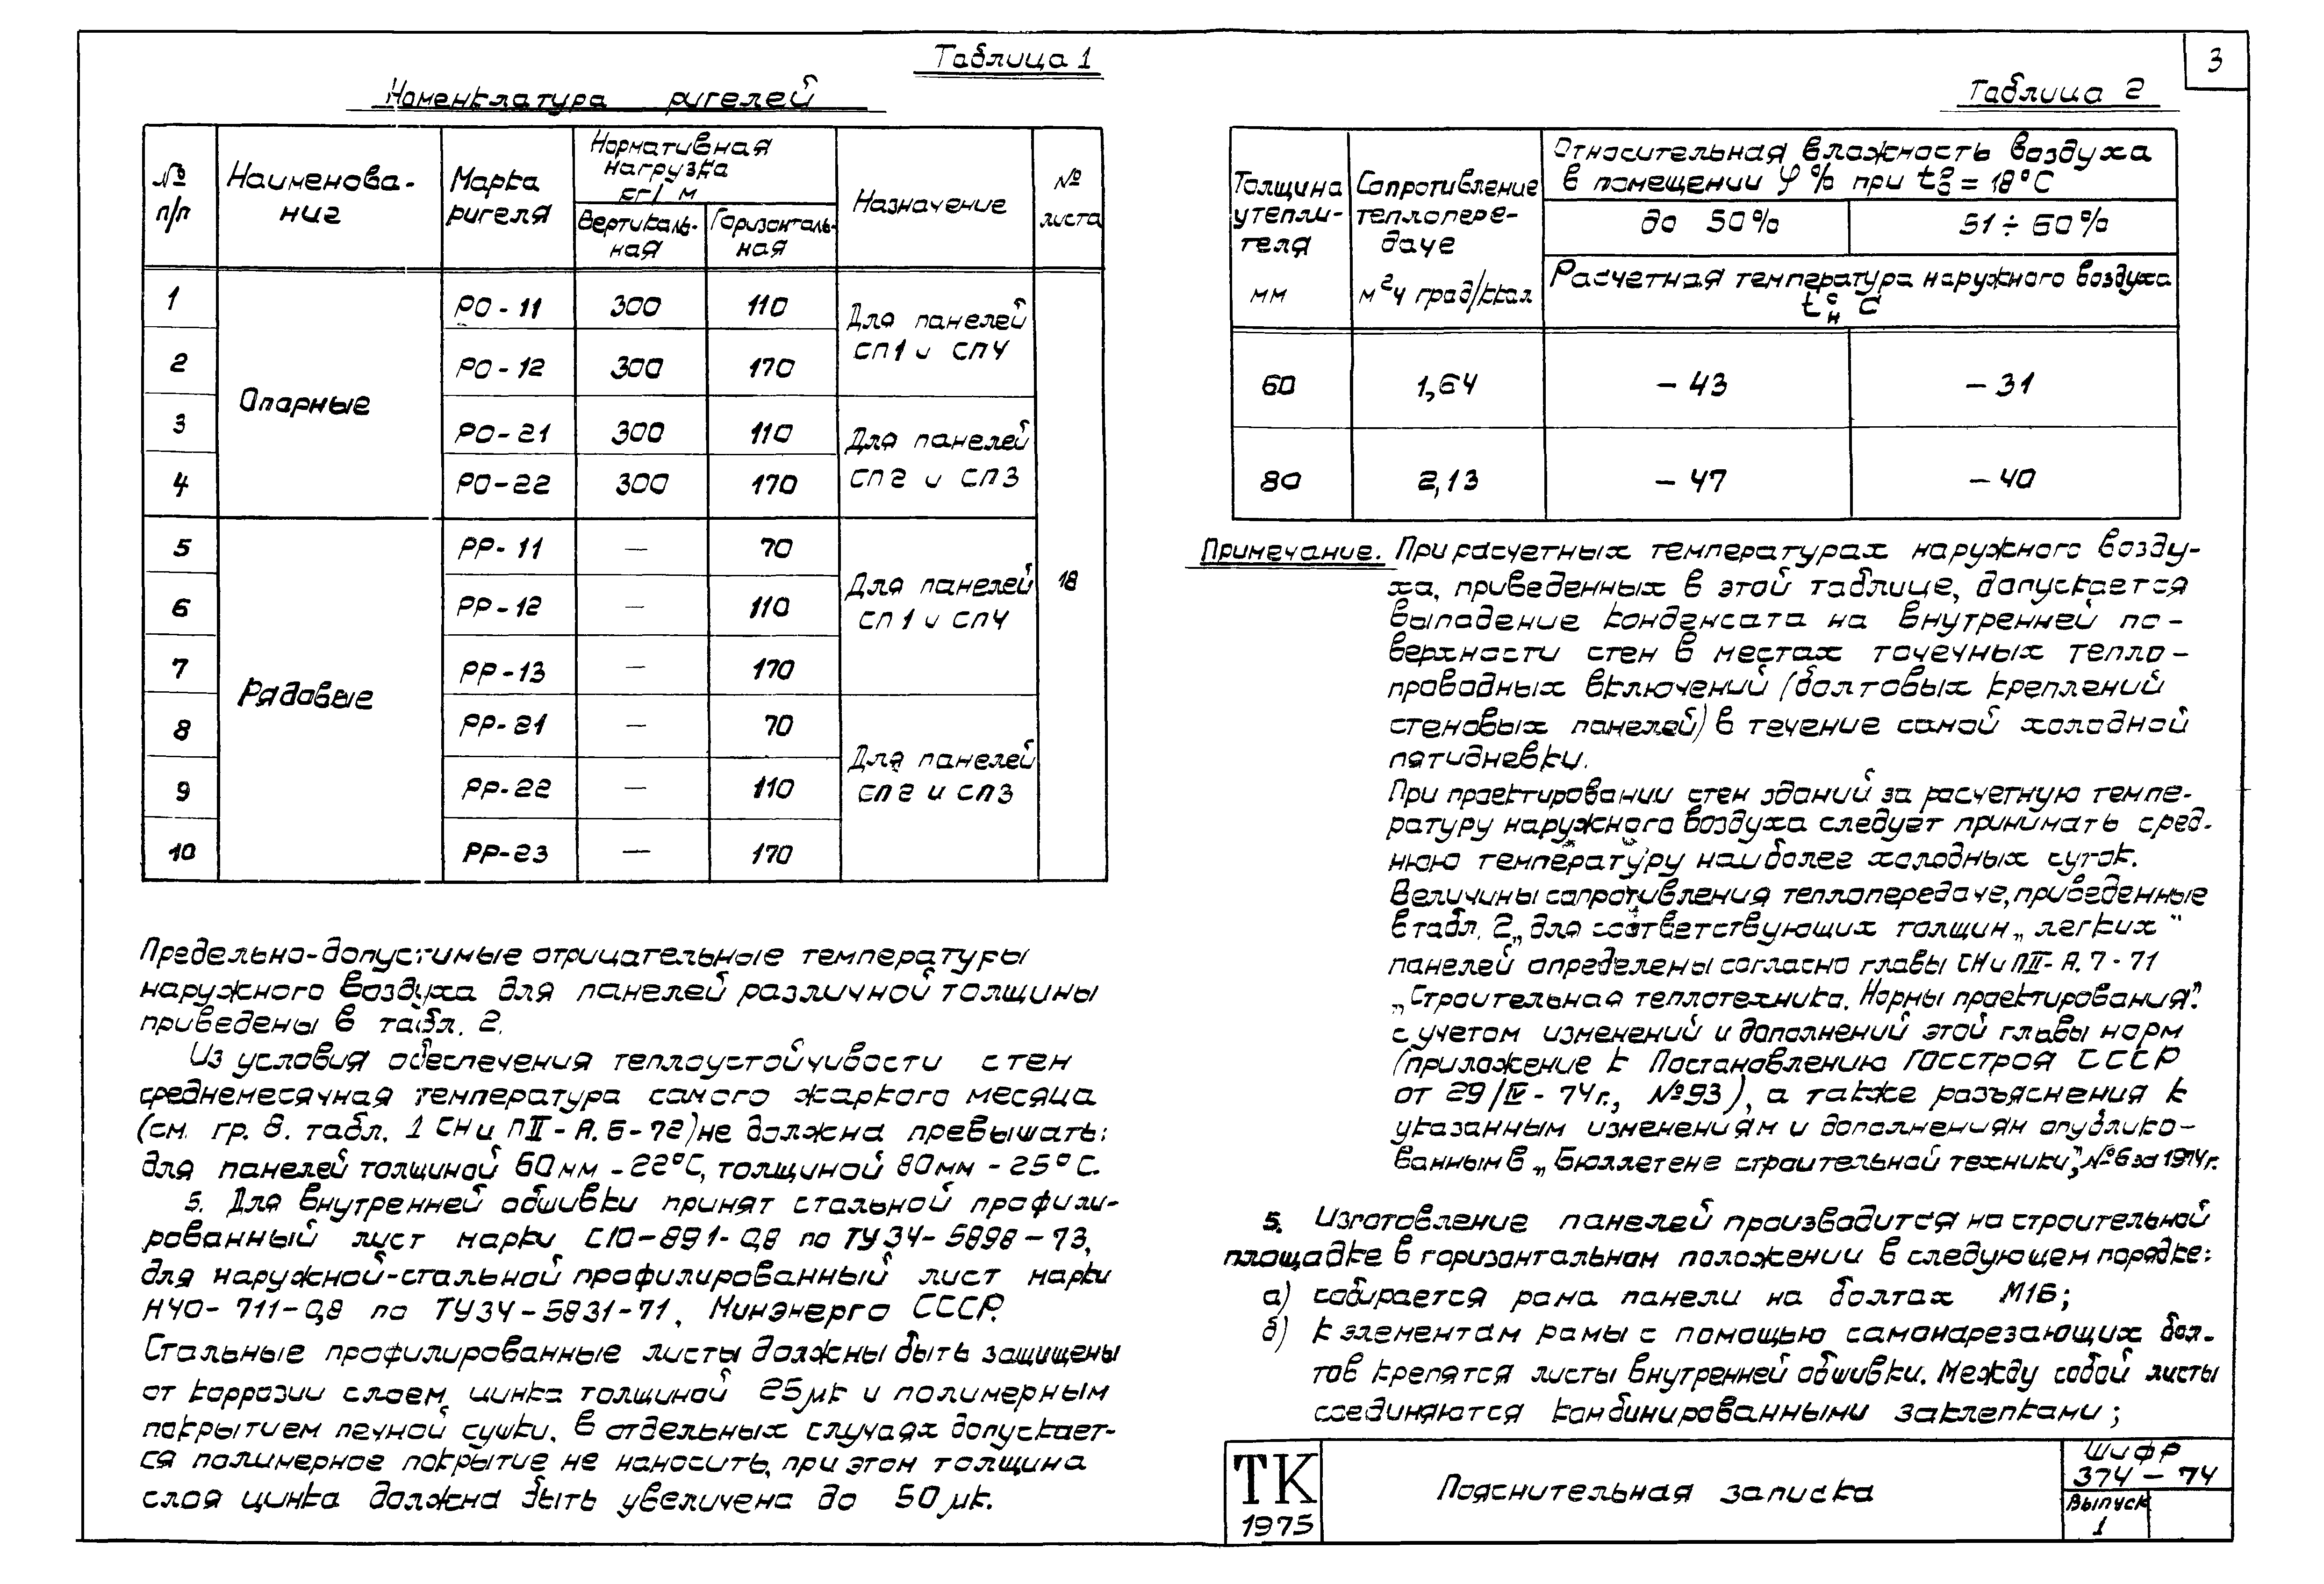 3
Таблица 1
Номенклатура ригелей
№ п/п
Наименова-
ние
Марка
ригеля
Нормативная
нагрузка
кг/ м
Вертикаль-
ная
Горизонталь-
ная
Назначение
№
листа
1 РО-11 300 110
2 РО-12 300 170
3 РО-21 300 110
4 РО-22 300 170
5 РР-11 — 70
6 РР-12 — 110
7 РР-13 — 170
8 РР-21 — 70
9 РР-22 — 110
10 РР-23 — 170
Опорные
Рядовые
Для панелей
СП1 и СП4
Для панелей
СП2 и СП3
Для панелей
СП1 и СП4
Для панелей
СП2 и СП3
18
Предельно-допустимые отрицательные температуры
наружного воздуха для панелей различной толщины
приведены в табл. 2.
Из условия обеспечения теплоустойчивости стен
среднемесячная температура самого жаркого месяца
(см. гр. 8. табл. 1 СНиПII-А.6-72) не должна превышать:
для панелей толщиной 60мм -22°С, толщиной 80мм -25°С.
5. Для внутренней обшивки принят стальной профили-
рованный лист марки С10-891-0,8 по ТУ34-5898-73,
для наружной-стальной профилированный лист марки
Н40-711-0,8 по ТУ34-5831-71, Минэнерго СССР.
Стальные профилированные листы должны быть защищены
от коррозии слоем цинка толщиной 25мк и полимерным
покрытием печной сушки. В отдельных случаях допускает-
ся полимерное покрытие не наносить, при этом толщина
слоя цинка должна быть увеличена до 50мк.
Таблица 2
Толщина
утепли-
теля
мм
Сопротивление
теплопере-
даче
м²ч град/ккал
Относительная влажность воздуха
в помещении φ% при tв = 18°С
до 50% 51÷60%
Расчетная температура наружного воздуха
tн °С
60 1,64 -43 -31
80 2,13 -47 -40
Примечание. При расчетных температурах наружного возду-
ха, приведенных в этой таблице, допускается
выпадение конденсата на внутренней по-
верхности стен в местах точечных тепло-
проводных включений (болтовых креплений
стеновых панелей) в течение самой холодной
пятидневки.
При проектировании стен зданий за расчетную темпе-
ратуру наружного воздуха следует принимать сред-
нюю температуру наиболее холодных суток.
Величины сопротивления теплопередаче, приведенные
в табл. 2, для соответствующих толщин „легких"
панелей определены согласно главы СНиПII-А.7-71
„Строительная теплотехника. Нормы проектирования".
с учетом изменений и дополнений этой главы норм
(приложение к Постановлению Госстроя СССР
от 29/IV-74г., №93), а также разъяснения к
указанным изменениям и дополнениям опублико-
ванным в „Бюллетене строительной техники", №6 за 1974г.
5. Изготовление панелей производится на строительной
площадке в горизонтальном положении в следующем порядке:
а) собирается рама панели на болтах М16;
б) к элементам рамы с помощью самонарезающих бол-
тов крепятся листы внутренней обшивки. Между собой листы
соединяются комбинированными заклепками;
ТК
1975
Пояснительная записка
Шифр
374-74
Выпуск
1